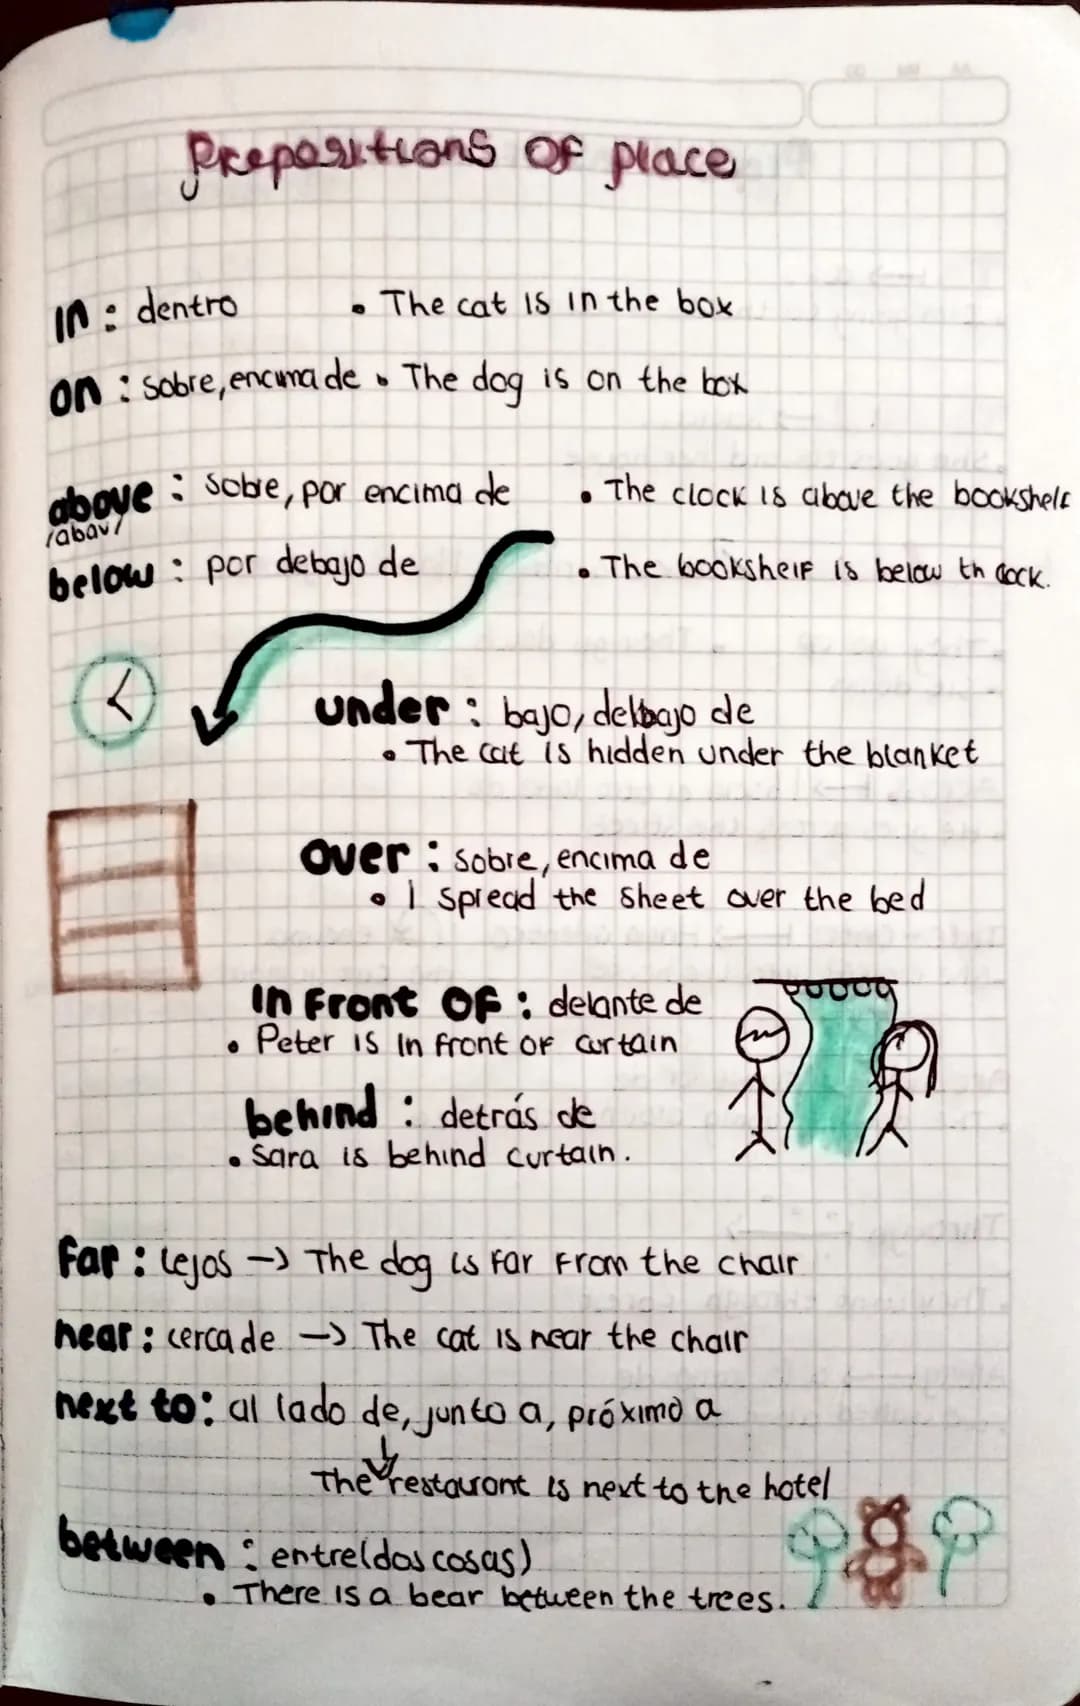 Prepositions of place
In : dentro • The cat is in the box
on : sobre, encima de • The dog is on the box
above : sobre, por encima de • The clock is above the bookshelf
/abav/
below : por debajo de • The bookshelf is below th clock.
under : bajo, debajo de
• The cat is hidden under the blanket
over : sobre, encima de
• I spread the sheet over the bed
In Front OF : delante de
• Peter is in front of curtain
behind : detrás de
• Sara is behind curtain.
far : lejos → The dog is far from the chair
near : cerca de → The cat is near the chair
next to : al lado de, junto a, próximo a
The restaurant is next to the hotel
between : entre(dos cosas)
• There is a bear between the trees.